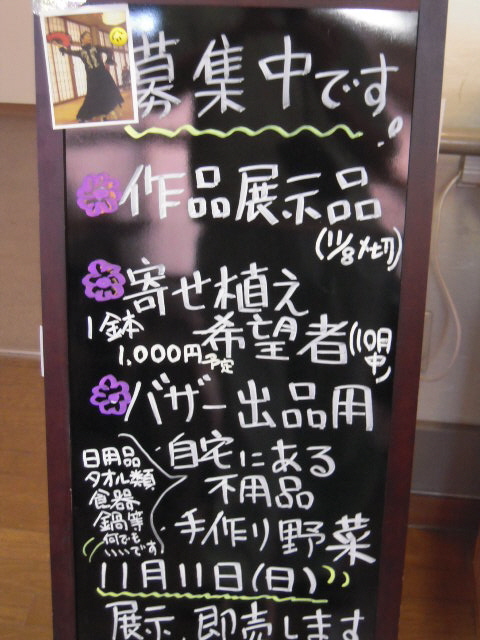 募集中です。
作品展示品
(11/8〆切)
寄せ植え
1鉢 希望者(10月中)
1,000円予定
バザー出品用
自宅にある
不用品
日用品
タオル類
食器
鍋等
何でも
いいです
手作り野菜
11月11日(日)
展示、即売します